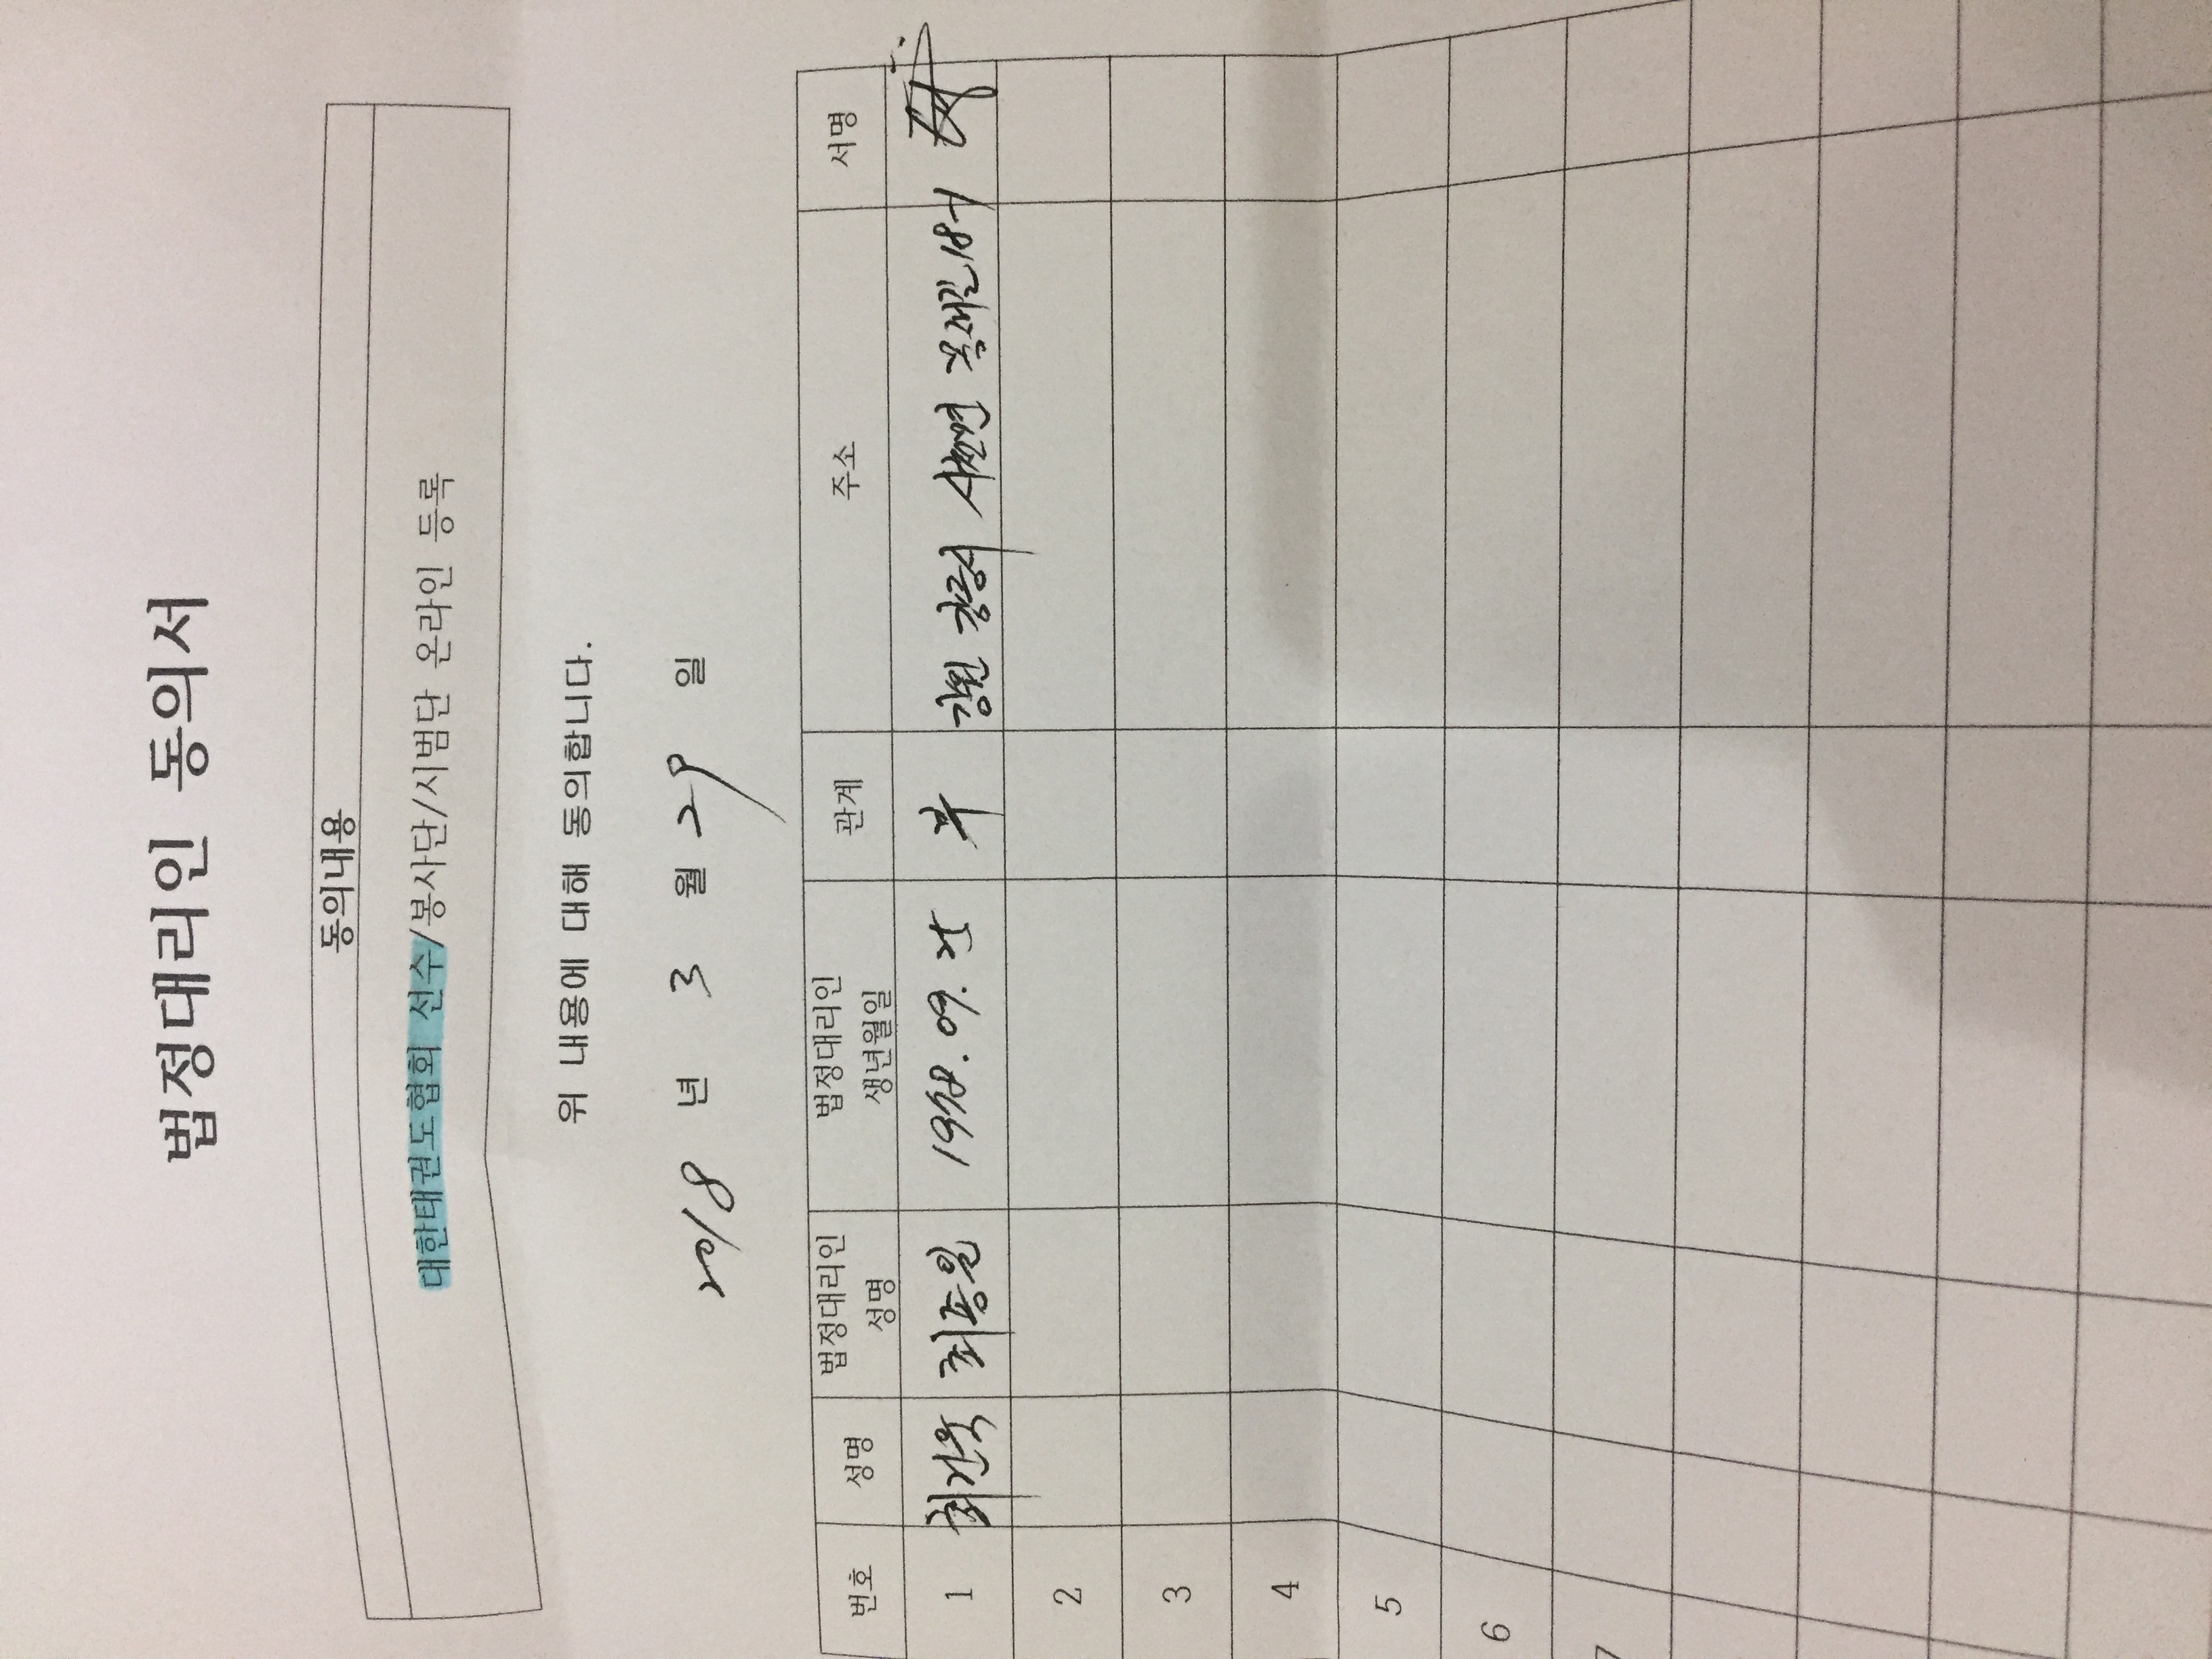 법정대리인 동의서
동의내용
대한태권도협회 선수/봉사단/시범단 온라인 등록
위 내용에 대해 동의합니다.
2018 년 3 월 29 일
번호 성명 법정대리인 성명 법정대리인 생년월일 관계 주소 서명
1 최용일 부 강원
2
3
4
5
6
7